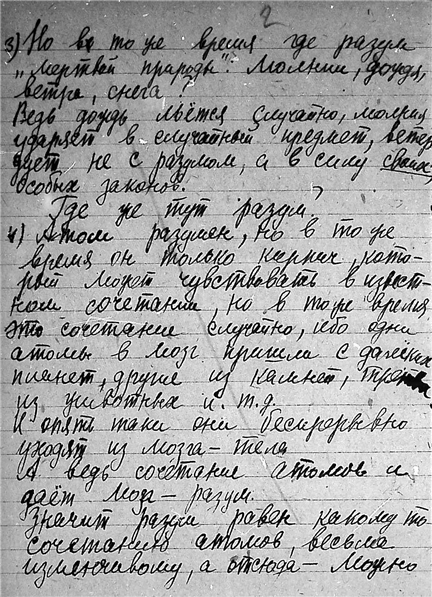 2
3) Но в то же время где разум
"мертвой природы": молнии, дождя,
ветра, снега?
Ведь дождь льётся случайно, молния
ударяет в случайный предмет, ветер
дует не с разумом, а в силу своих
особых законов.
Где же тут разум?
4) Атом разумен, но в то же
время он только кирпич, кото-
рый может чувствовать в извест-
ном сочетании, но в то же время
это сочетание случайно, ибо одни
атомы в мозг пришли с далёких
планет, другие из камней, третьи
из животных и т.д.
И опять таки они беспрерывно
уходят из мозга – тела
А ведь сочетание атомов и
даёт мозг – разум.
Значит разум равен какому то
сочетанию атомов, весьма
изменчивому, а отсюда – можно